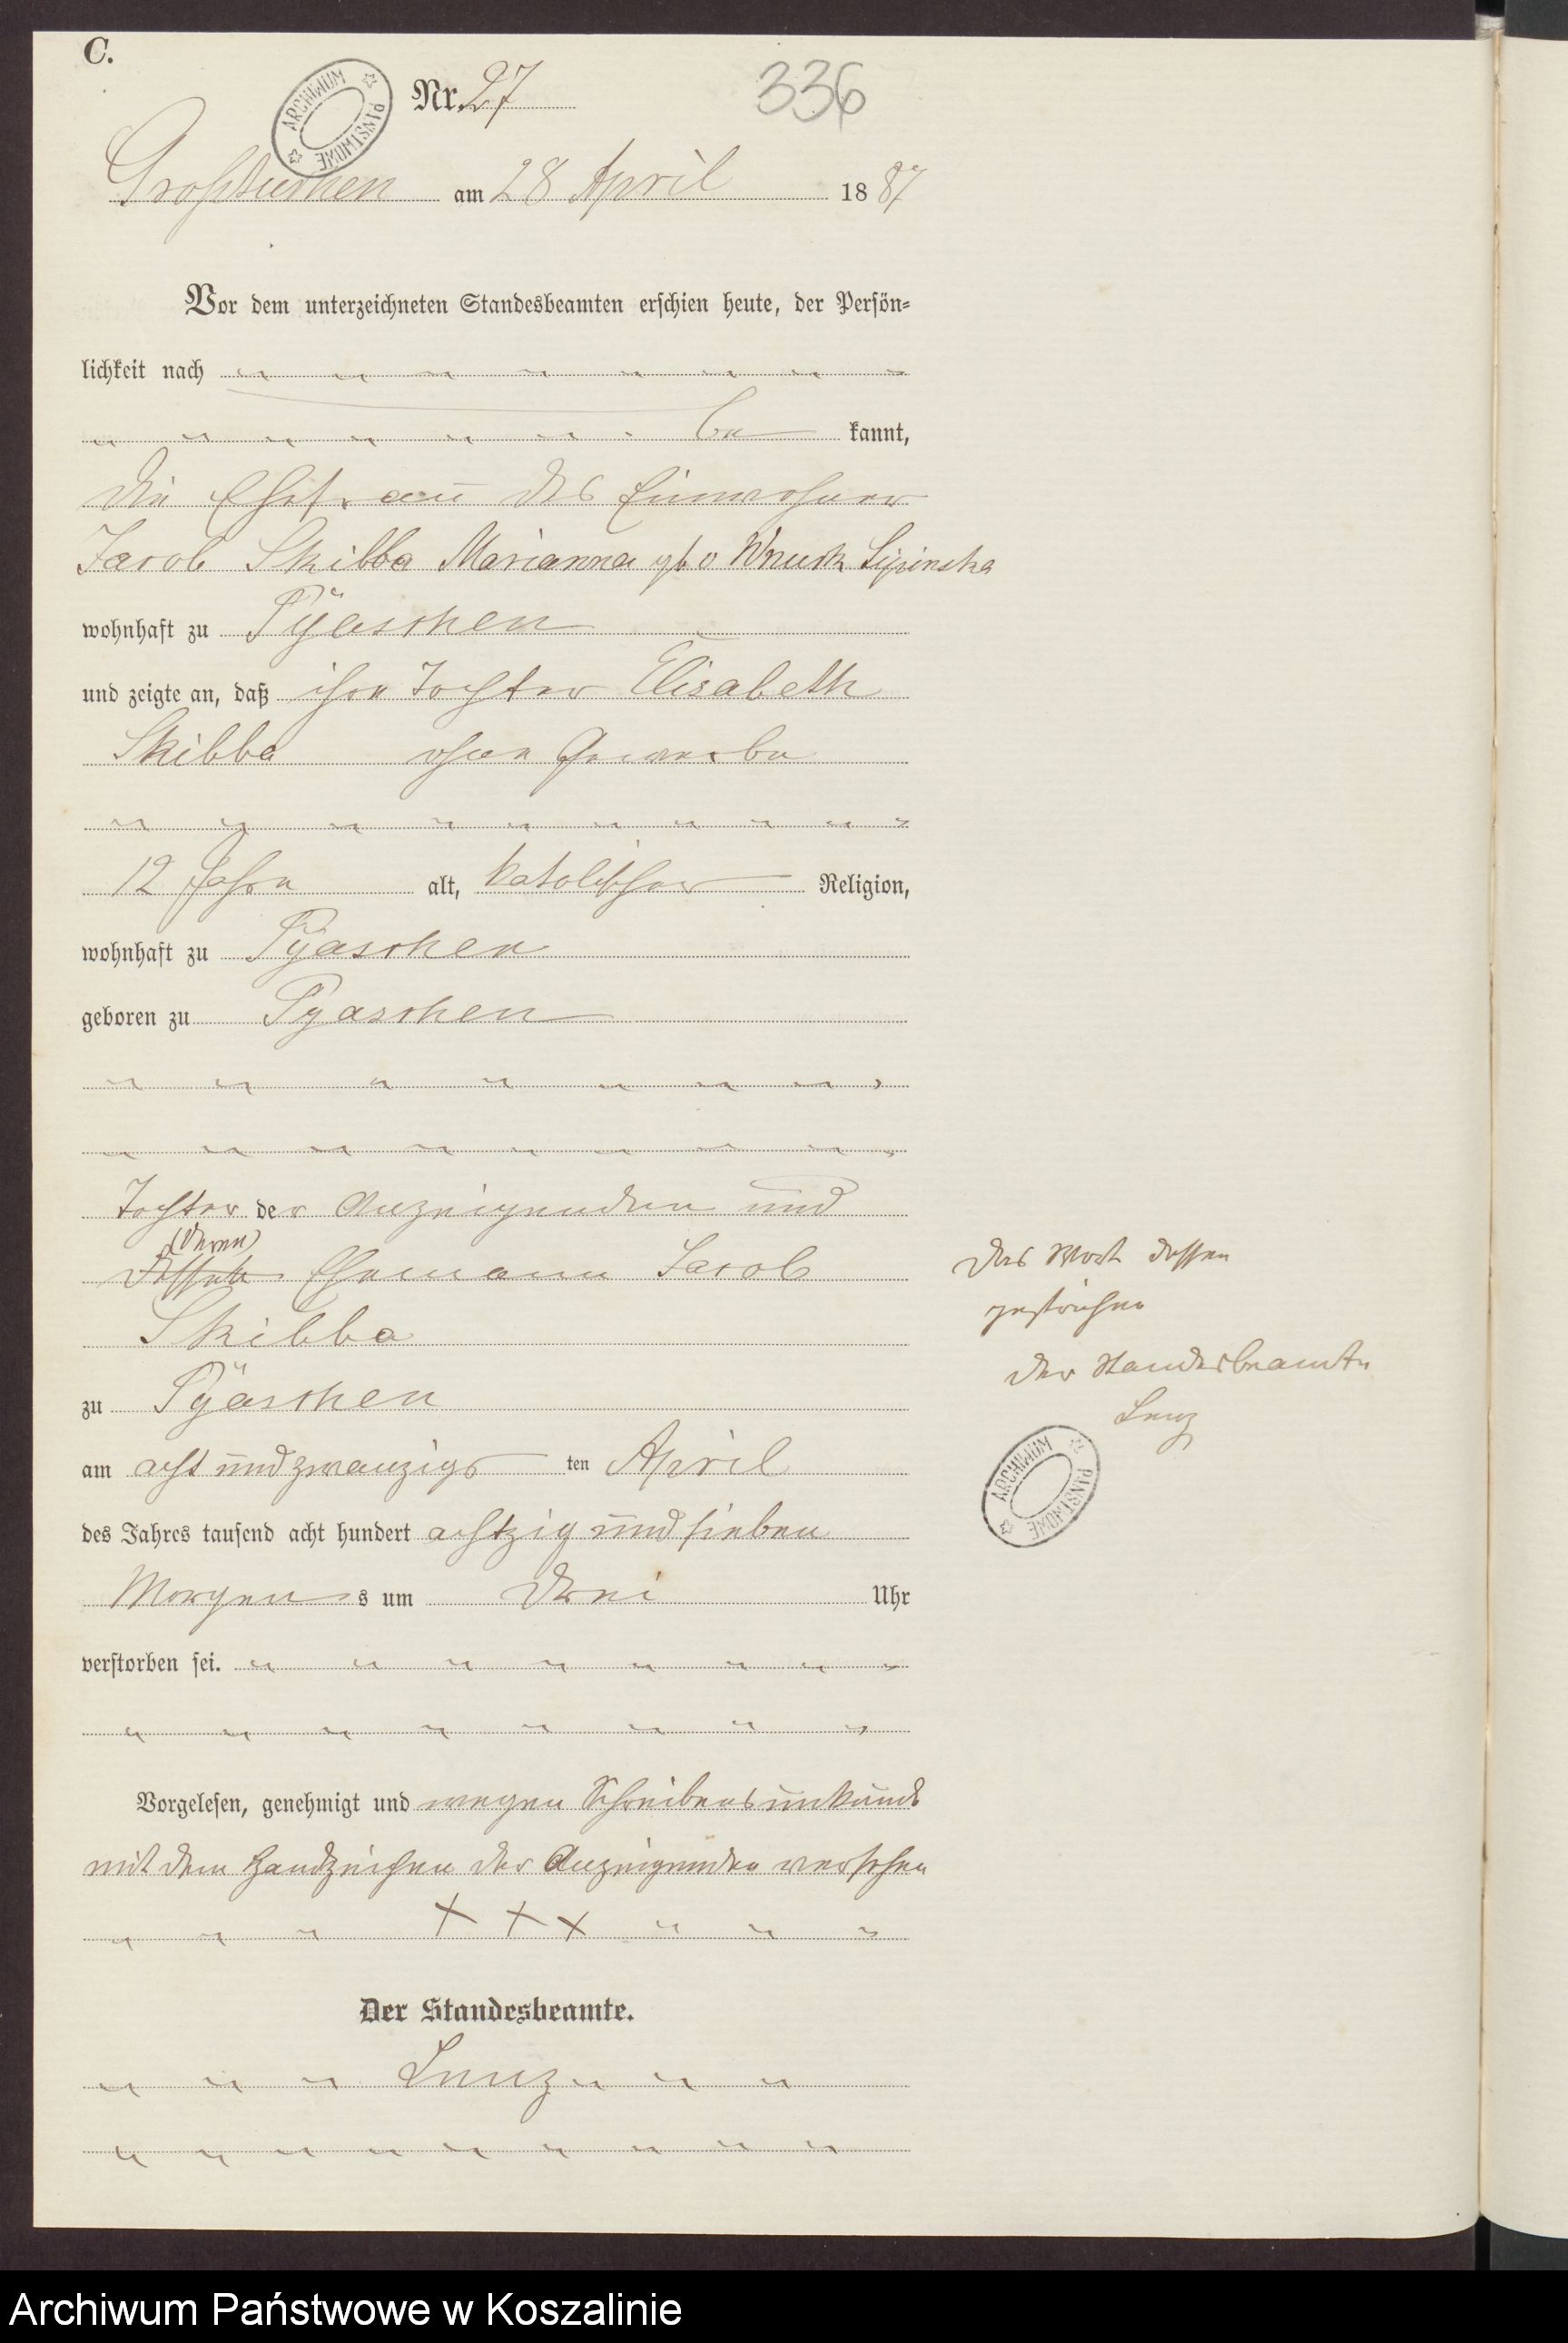 C.
Nr. 27
336
ARCHIWUM PAŃSTWOWE
Großtuchen am 28 April 1887
Vor dem unterzeichneten Standesbeamten erschien heute, der Persön-
lichkeit nach
be kannt,
die Ehefrau des Einwohner
Jacob Skibba Marianna geb Wnuck Lipinska
wohnhaft zu Pÿaschen
und zeigte an, daß ihre Tochter Elisabeth
Skibba ohne Gewerbe
12 Jahre alt, katolischer Religion,
wohnhaft zu Pÿaschen
geboren zu Pyaschen
Tochter der Anzeigenden und
(deren)
dessen Ehemann Jacob
Skibba
zu Pÿaschen
am acht und zwanzigs ten April
des Jahres tausend acht hundert achtzig und sieben
Morgens um drei Uhr
verstorben sei.
Vorgelesen, genehmigt und wegen Schreibensunkunde
mit dem Handzeichen der Anzeigenden versehen
+ + +
Der Standesbeamte.
Lenz
Das Wort dessen
gestrichen
Der Standesbeamte
Lenz
ARCHIWUM PAŃSTWOWE
Archiwum Państwowe w Koszalinie